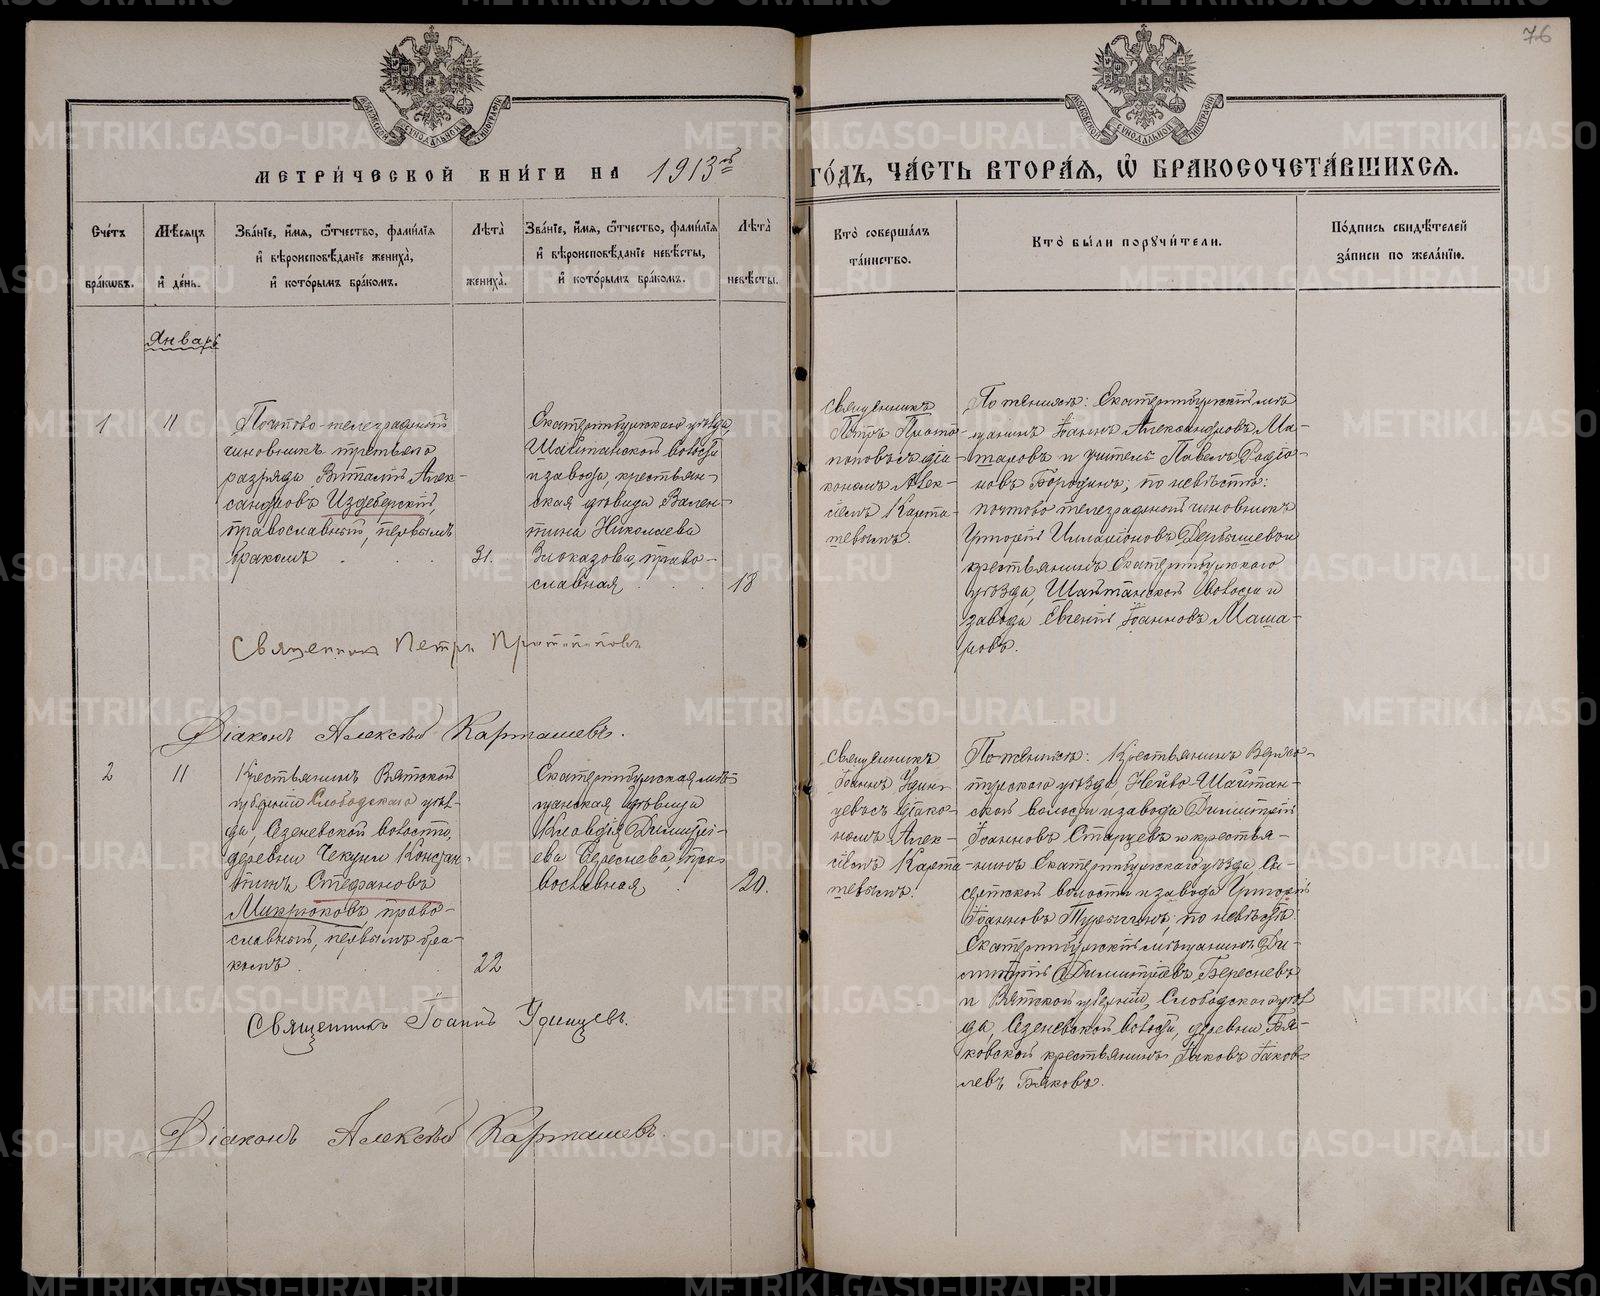 76
МЕТРИ́ЧЕСКОЙ КНИ́ГИ НА 1913й ГО́ДЪ, ЧА́СТЬ ВТОРА́Я, Ѡ БРАКОСОЧЕТА́ВШИХСЯ.
Сче́тъ бра́кѡвъ.
Мѣсяцъ и҆ де́нь.
Зва́нїе, и҆́мя, ѻ҆́тчество, фами́лїя
и҆ вѣроисповѣ́данїе жениха̀,
и҆ кото́рымъ бра́комъ.
Лѣта̀ жениха̀.
Зва́нїе, и҆́мя, ѻ҆́тчество, фами́лїя
и҆ вѣроисповѣ́данїе невѣ́сты,
и҆ кото́рымъ бра́комъ.
Лѣта̀ невѣ́сты.
Кто̀ соверша́лъ
та́инство.
Кто̀ бы́ли поручи́тели.
По́дпись свидѣ́телей
за́писи по жела́нїю.
Январь
1
11
Почтово-телеграфный
чиновникъ третьяго
разряда Виталій Алек-
сандровъ Издеберскій,
православный, первымъ
бракомъ
31.
Екатеринбургскаго уѣзда,
Шайтанской волости
и завода, крестьян-
ская дѣвица Вален-
тина Николаева
Злоказова, право-
славная
18
Священникъ
Петръ Прото-
поповъ съ діа-
кономъ Алек-
сіемъ Карта-
шевымъ.
По женихѣ: Екатеринбургскій мѣ-
щанинъ Іоаннъ Александровъ Ма-
шаровъ и учитель Павелъ Родіо-
новъ Бородинъ; по невѣстѣ:
почтово телеграфный чиновникъ
Григорій Илларіоновъ Дембышевъ и
крестьянинъ Екатеринбургскаго
уѣзда, Шайтанской волости и
завода Евгеній Іоанновъ Маша-
ровъ.
Священникъ Петръ Протопоповъ
Діаконъ Алексѣй Карташевъ.
2
11
Крестьянинъ Вятской
губерніи Слободского уѣз-
да, Сезеневской волости,
деревни Чекуни Констан-
тинъ Стефановъ
Микрюковъ, право-
славный, первымъ бра-
комъ
22
Екатеринбургская мѣ-
щанская дѣвица
Клавдія Димитрі-
ева Береснева, пра-
вославная
20.
Священникъ
Іоаннъ Удин-
цевъ съ діако-
номъ Алек-
сіемъ Карта-
шевымъ.
По женихѣ: Крестьянинъ Верхо-
турскаго уѣзда, Нейво-Шайтан-
ской волости и завода Димитрій
Іоанновъ Старцевъ и крестья-
нинъ Екатеринбургскаго уѣзда, Сы-
сертской волости и завода Григорій
Іоанновъ Турыгинъ; по невѣстѣ:
Екатеринбургскій мѣщанинъ Ди-
митрій Димитріевъ Бересневъ
и Вятской губерніи, Слободского уѣз-
да, Сезеневской волости, деревни Бя-
ковской крестьянинъ Іаковъ Іаков-
левъ Бяковъ.
Священникъ Іоаннъ Удинцевъ.
Діаконъ Алексѣй Карташевъ.
METRIKI.GASO-URAL.RU